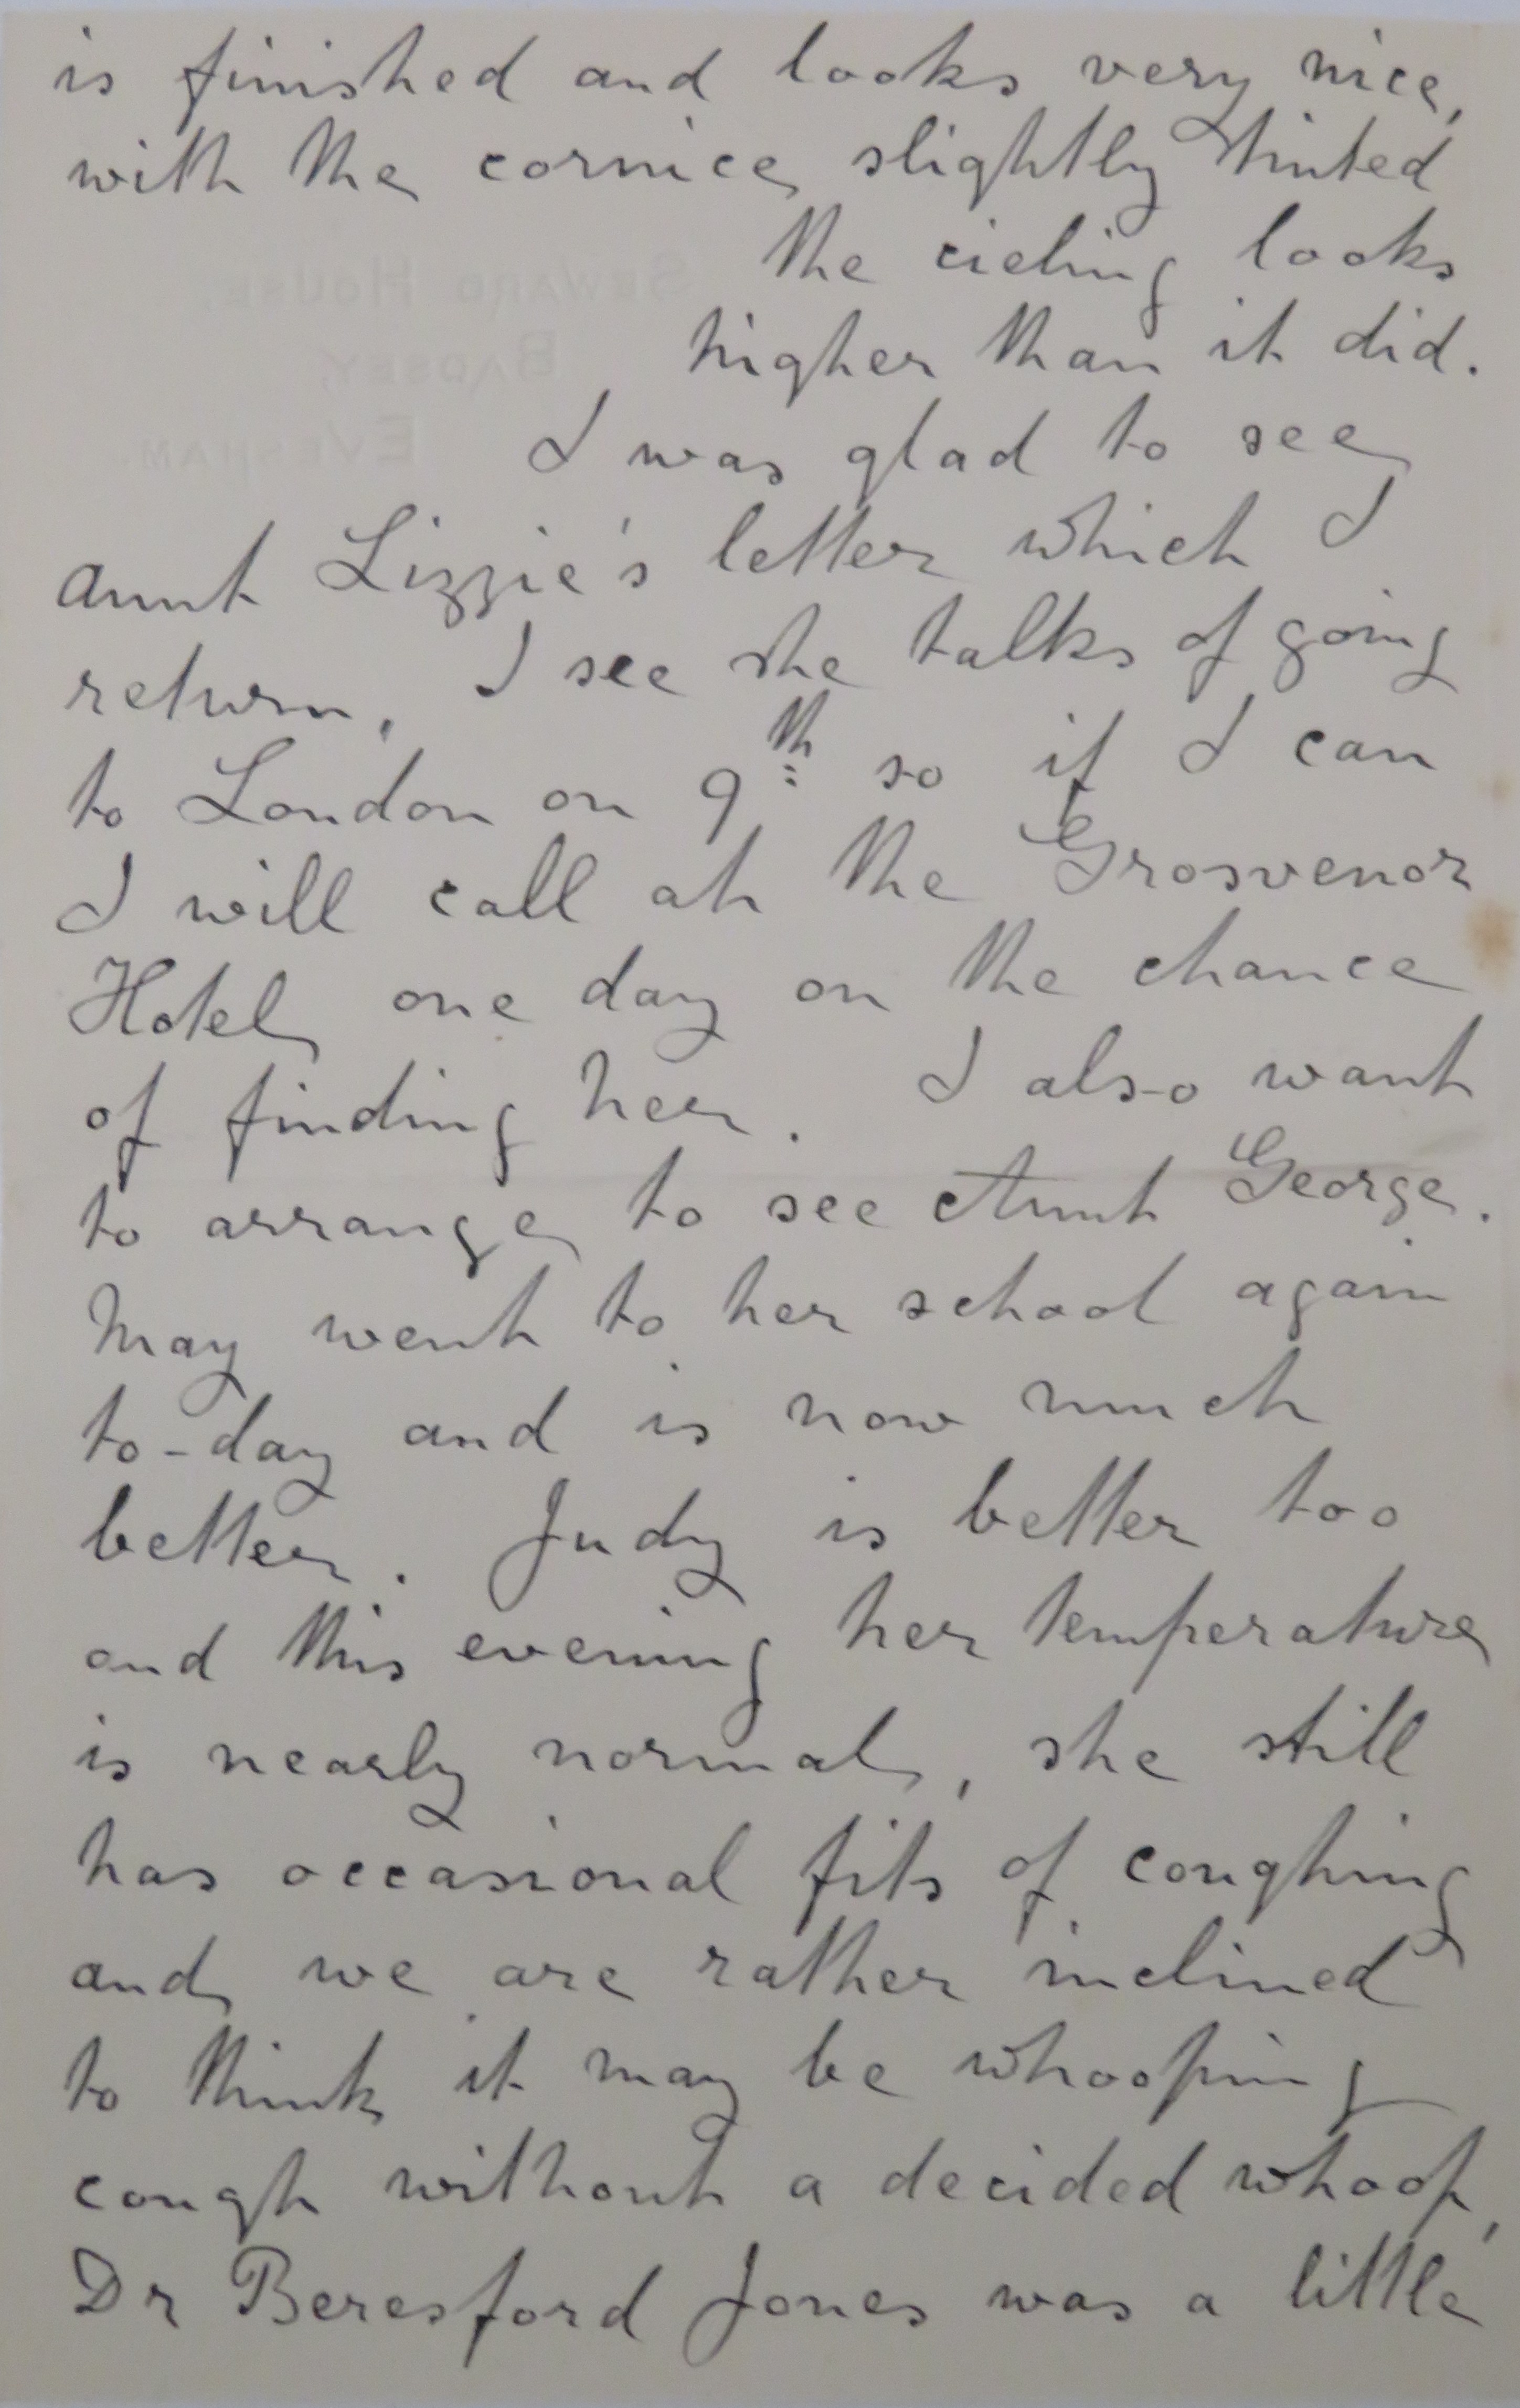 is finished and looks very nice,
with the cornice slightly tinted
the cieling looks
higher than it did.
I was glad to see
aunt Lizzie's letter which I
return. I see she talks of going
to London on 9th so if I can
I will call at the Grosvenor
Hotel one day on the chance
of finding her. I also want
to arrange to see Aunt George.
May went to her school again
to-day and is now much
better. Judy is better too
and this evening her temperature
is nearly normal, she still
has occasional fits of coughing
and we are rather inclined
to think it may be whooping
cough without a decided whoop,
Dr Beresford Jones was a little
SEWARD HOUSE,
BADSEY,
EVESHAM.